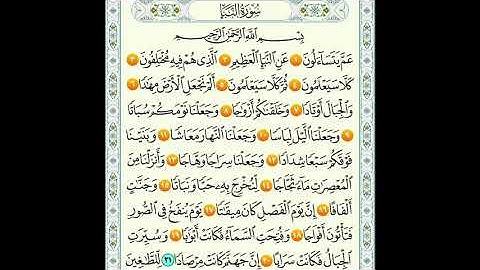 سُورَةُ النَّبَإِ
بِسْمِ اللَّهِ الرَّحْمَٰنِ الرَّحِيمِ
عَمَّ يَتَسَآءَلُونَ ١ عَنِ النَّبَإِ الْعَظِيمِ ٢ الَّذِى هُمْ فِيهِ مُخْتَلِفُونَ ٣
كَلَّا سَيَعْلَمُونَ ٤ ثُمَّ كَلَّا سَيَعْلَمُونَ ٥ أَلَمْ نَجْعَلِ الْأَرْضَ مِهَٰدًا ٦
وَالْجِبَالَ أَوْتَادًا ٧ وَخَلَقْنَٰكُمْ أَزْوَٰجًا ٨ وَجَعَلْنَا نَوْمَكُمْ سُبَاتًا
٩ وَجَعَلْنَا الَّيْلَ لِبَاسًا ١٠ وَجَعَلْنَا النَّهَارَ مَعَاشًا ١١ وَبَنَيْنَا
فَوْقَكُمْ سَبْعًا شِدَادًا ١٢ وَجَعَلْنَا سِرَاجًا وَهَّاجًا ١٣ وَأَنزَلْنَا مِنَ
الْمُعْصِرَٰتِ مَآءً ثَجَّاجًا ١٤ لِّنُخْرِجَ بِهِۦ حَبًّا وَنَبَاتًا ١٥ وَجَنَّٰتٍ
أَلْفَافًا ١٦ إِنَّ يَوْمَ الْفَصْلِ كَانَ مِيقَٰتًا ١٧ يَوْمَ يُنفَخُ فِى الصُّورِ
فَتَأْتُونَ أَفْوَاجًا ١٨ وَفُتِحَتِ السَّمَآءُ فَكَانَتْ أَبْوَٰبًا ١٩ وَسُيِّرَتِ
الْجِبَالُ فَكَانَتْ سَرَابًا ٢٠ إِنَّ جَهَنَّمَ كَانَتْ مِرْصَادًا ٢١ لِّلطَّٰغِينَ